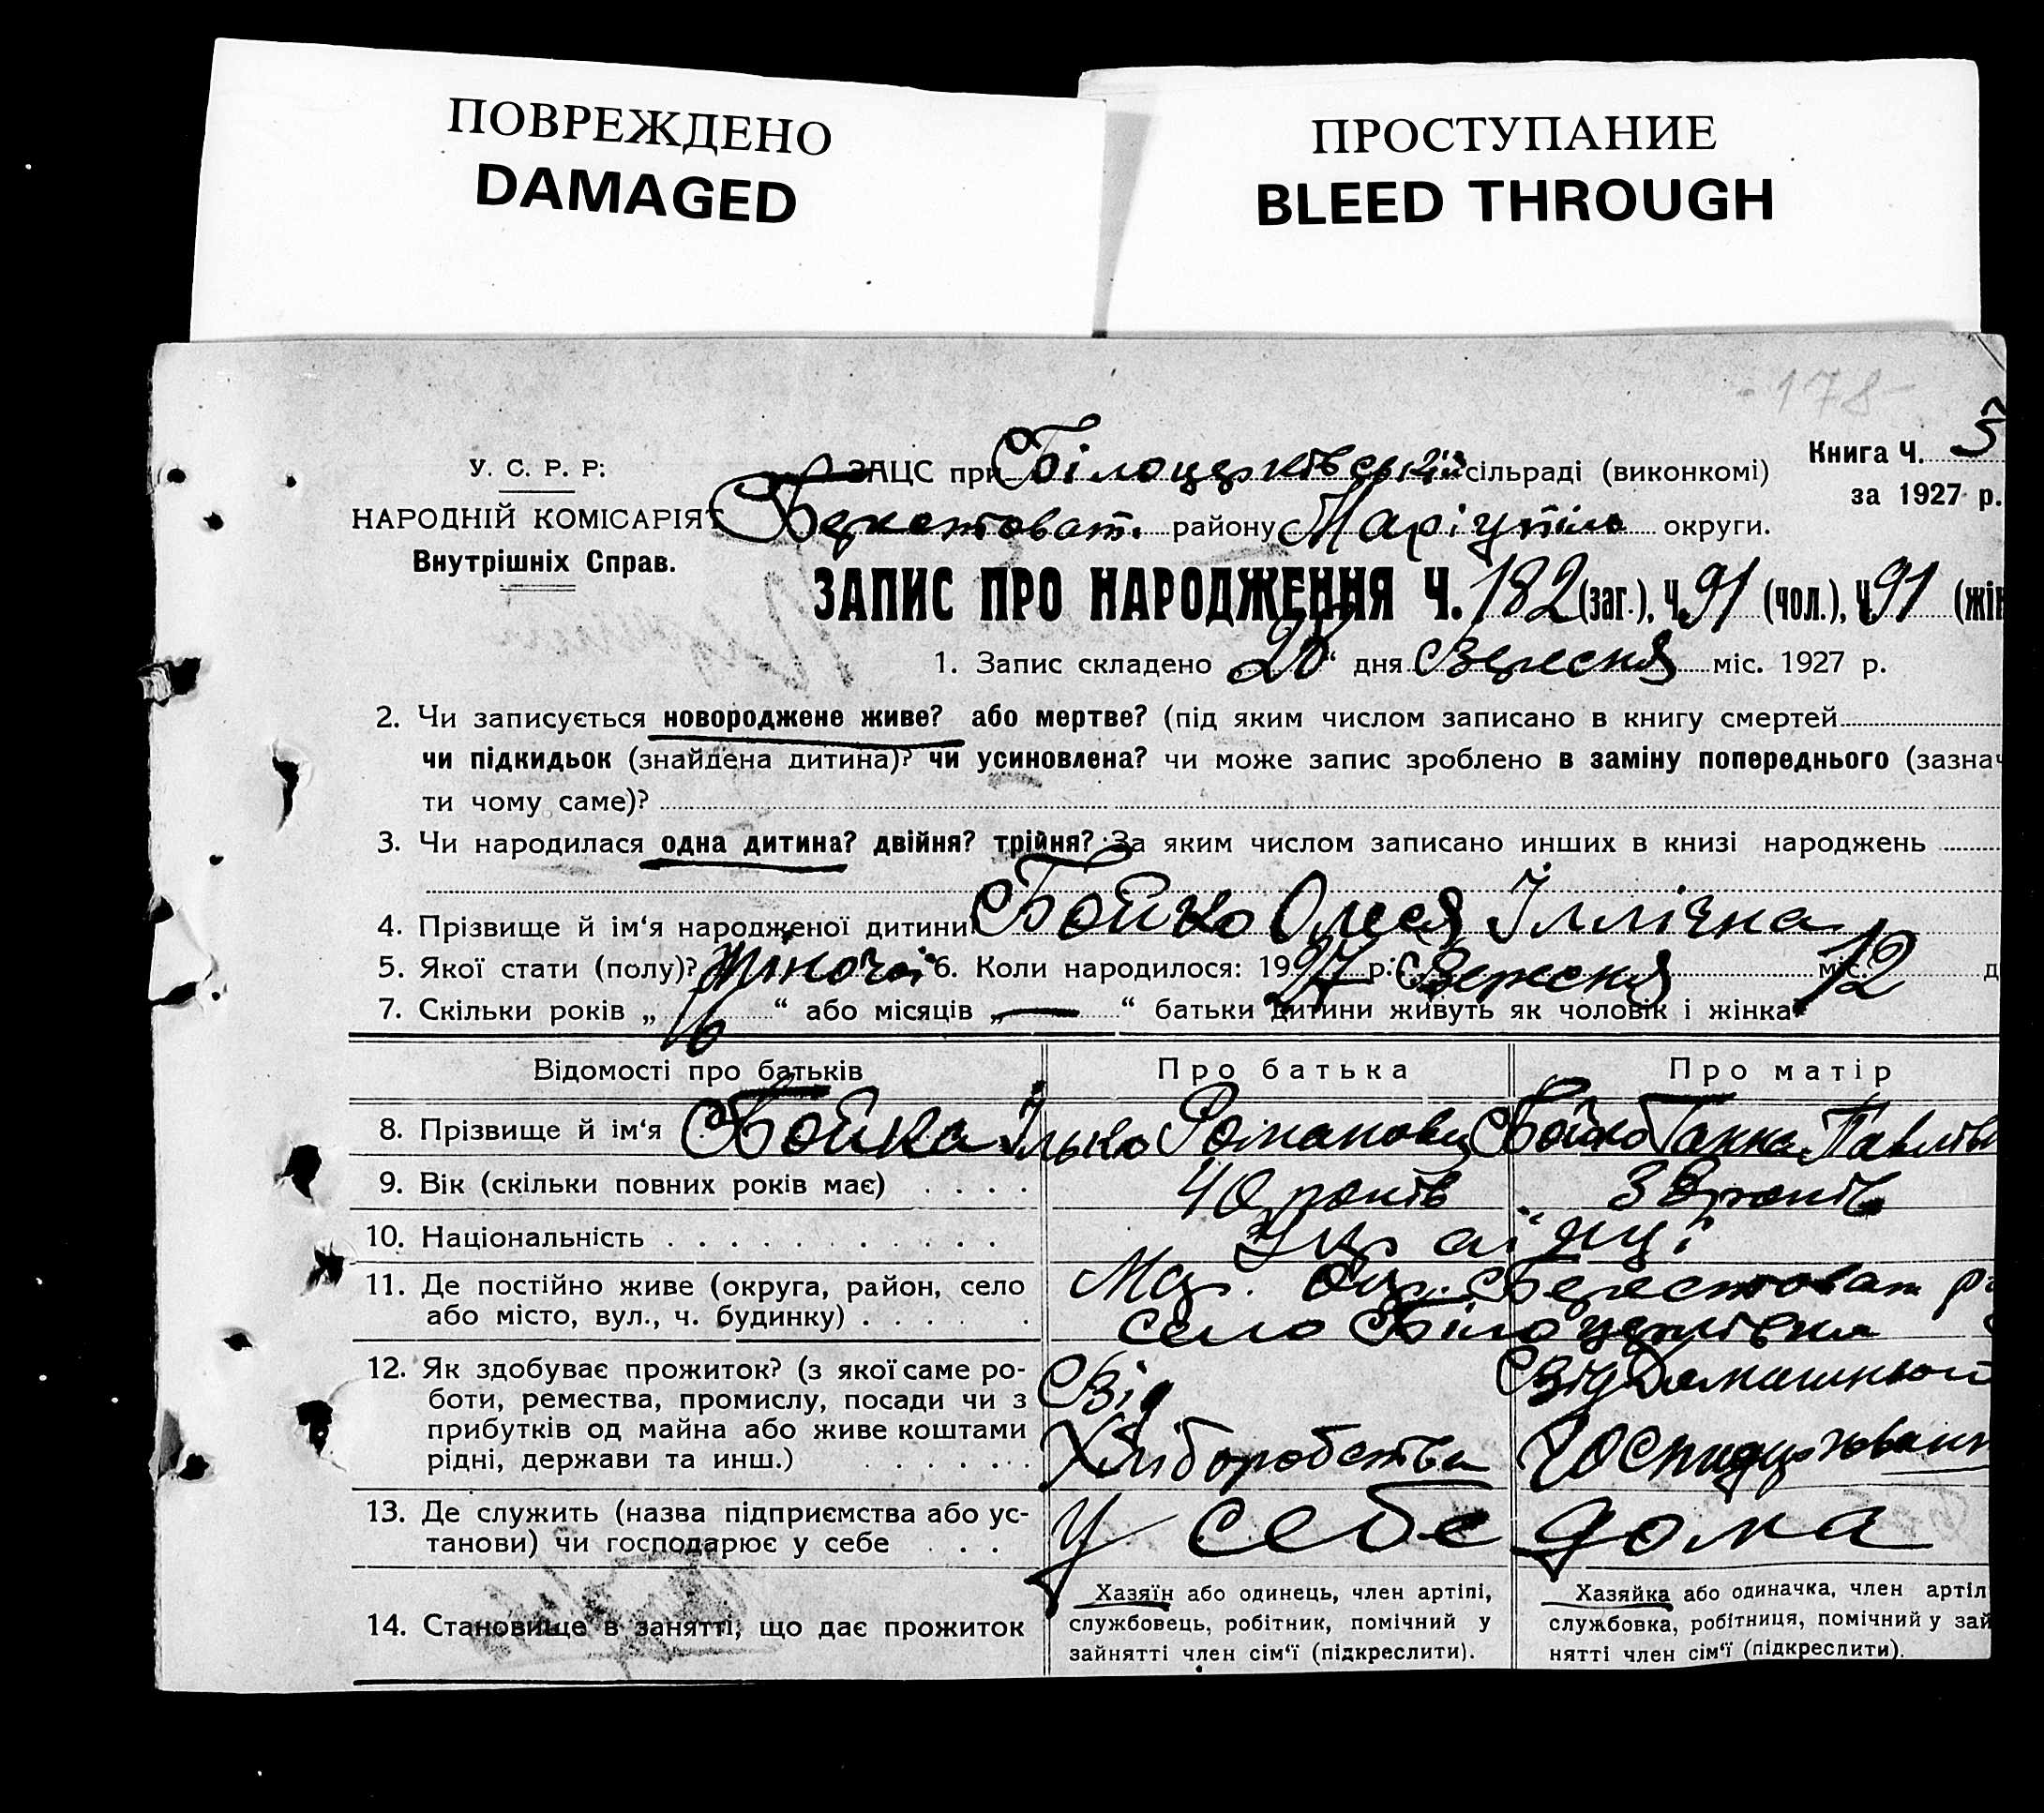 ПОВРЕЖДЕНО
DAMAGED
ПРОСТУПАНИЕ
BLEED THROUGH
-178-
У. С. Р. Р.
НАРОДНІЙ КОМІСАРІЯТ
Внутрішніх Справ.
ЗАЦС при Білоцерківській сільраді (виконкомі)
району Маріупіль округи.
Книга Ч. 5
за 1927 р.
ЗАПИС ПРО НАРОДЖЕННЯ Ч. 182 (заг.), Ч. 91 (чол.), Ч. 91 (жін
1. Запис складено дня Вересня міс. 1927 р.
2. Чи записується новороджене живе? або мертве? (під яким числом записано в книгу смертей
чи підкидьок (знайдена дитина)? чи усиновлена? чи може запис зроблено в заміну попереднього (зазнач
ти чому саме)?
3. Чи народилася одна дитина? двійня? трійня? За яким числом записано инших в книзі народжень
4. Прізвище й ім‘я народженої дитини Бойко Олеся Іллічна
5. Якої стати (полу)? Жіночої 6. Коли народилося: 1927 р. Вересня міс. 12 д
7. Скільки років „ 16 “ або місяців „ — “ батьки дитини живуть як чоловік і жінка?
Відомості про батьків
Про батька
Про матір
8. Прізвище й ім‘я Бойка Ілько Романович Бойко Ганна Павлівн
9. Вік (скільки повних років має) 40 років 38 років
10. Національність Українці
11. Де постійно живе (округа, район, село
або місто, вул., ч. будинку)
Мар. окр. Берестоват. р
село Білоцерківка
12. Як здобуває прожиток? (з якої саме ро-
боти, ремества, промислу, посади чи з
прибутків од майна або живе коштами
рідні, держави та инш.)
Від
Хліборобства
Від Домашньої
Господарюванн
13. Де служить (назва підприємства або ус-
танови) чи господарює у себе
У себе дома
14. Становище в занятті, що дає прожиток
Хазяїн або одинець, член артілі,
службовець, робітник, помічний у
зайнятті член сім‘ї (підкреслити).
Хазяйка або одиначка, член артіл
службовка, робітниця, помічний у зай
нятті член сім‘ї (підкреслити).